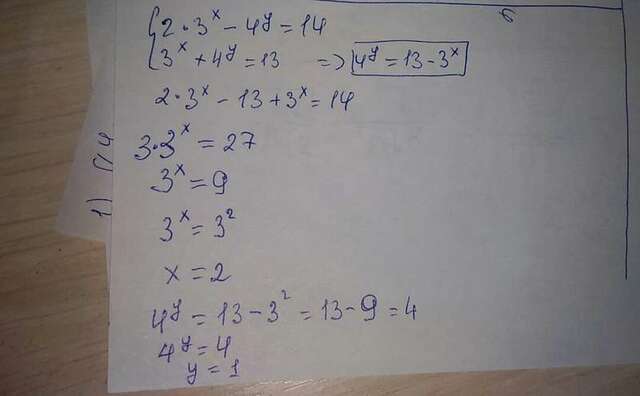 2 · 3ˣ - 4ʸ = 14
3ˣ + 4ʸ = 13 => 4ʸ = 13 - 3ˣ
2 · 3ˣ - 13 + 3ˣ = 14
3 · 3ˣ = 27
3ˣ = 9
3ˣ = 3²
x = 2
4ʸ = 13 - 3² = 13 - 9 = 4
4ʸ = 4
y = 1